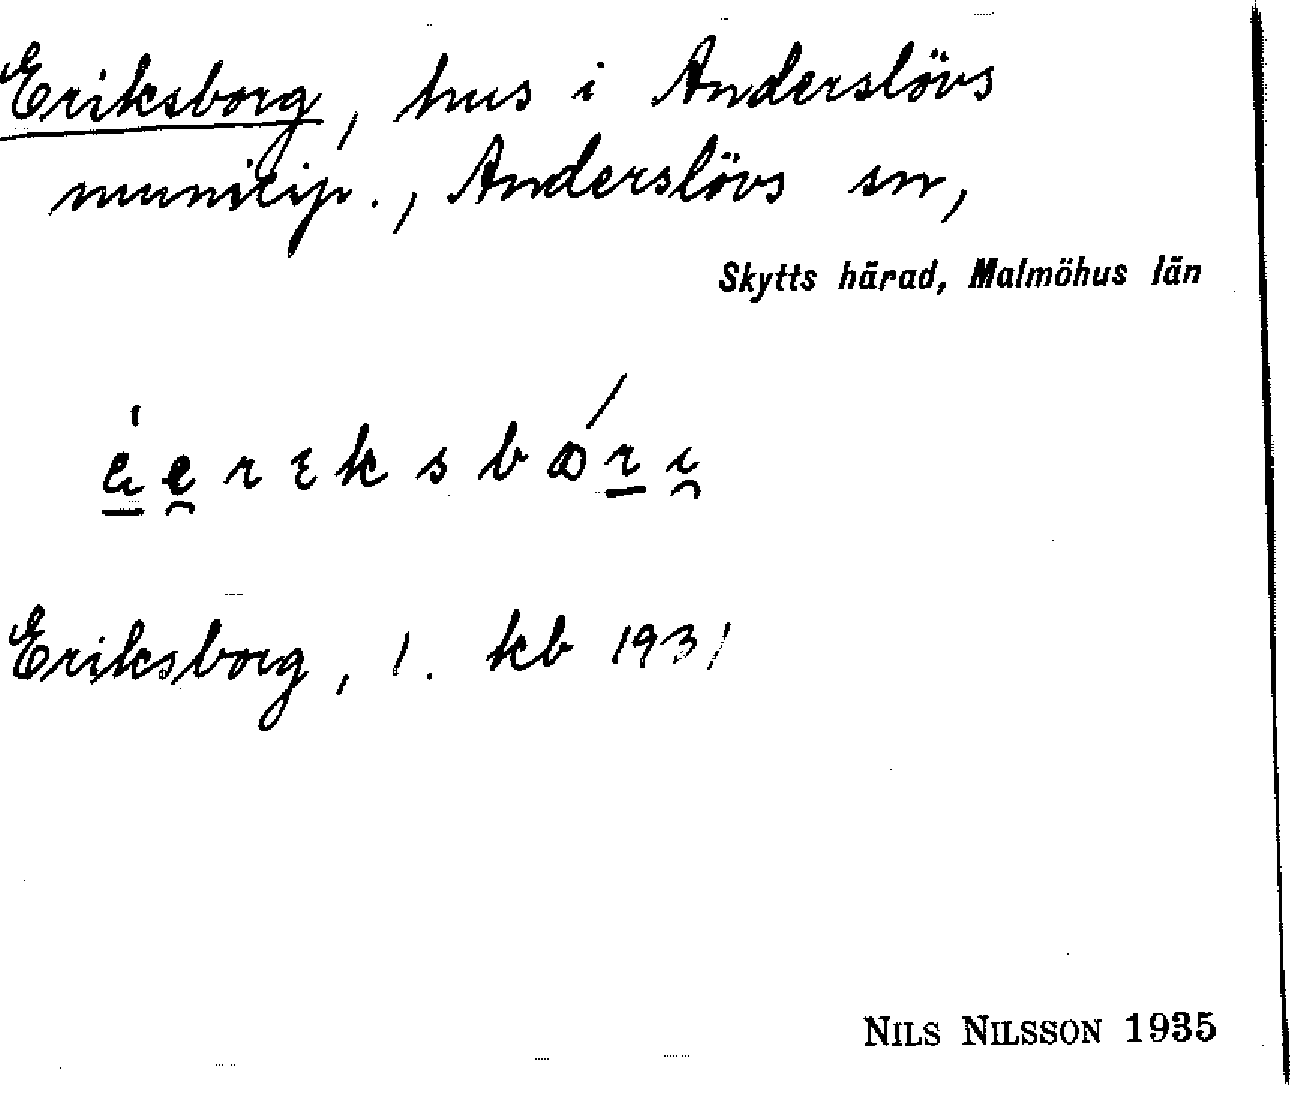 Eriksborg, hus i Anderslövs
municip., Anderslövs sn,
Skytts härad, Malmöhus län
Eriksborg, 1. kb 1931
NILS NILSSON 1935